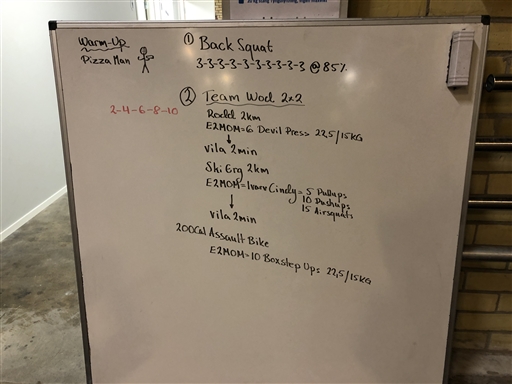 Warm-Up
Pizza Man
2-4-6-8-10
① Back Squat
3-3-3-3-3-3-3-3-3-3 @ 85%
② Team Wod 2x2
Rodd 2km
E2MOM=6 Devil Press 22,5/15KG
vila 2min
Ski Erg 2km
E2MOM=1varv Cindy = 5 Pullups
10 Pushups
15 Airsquats
vila 2min
200Cal Assault Bike
E2MOM=10 Boxstep Ups 22,5/15KG